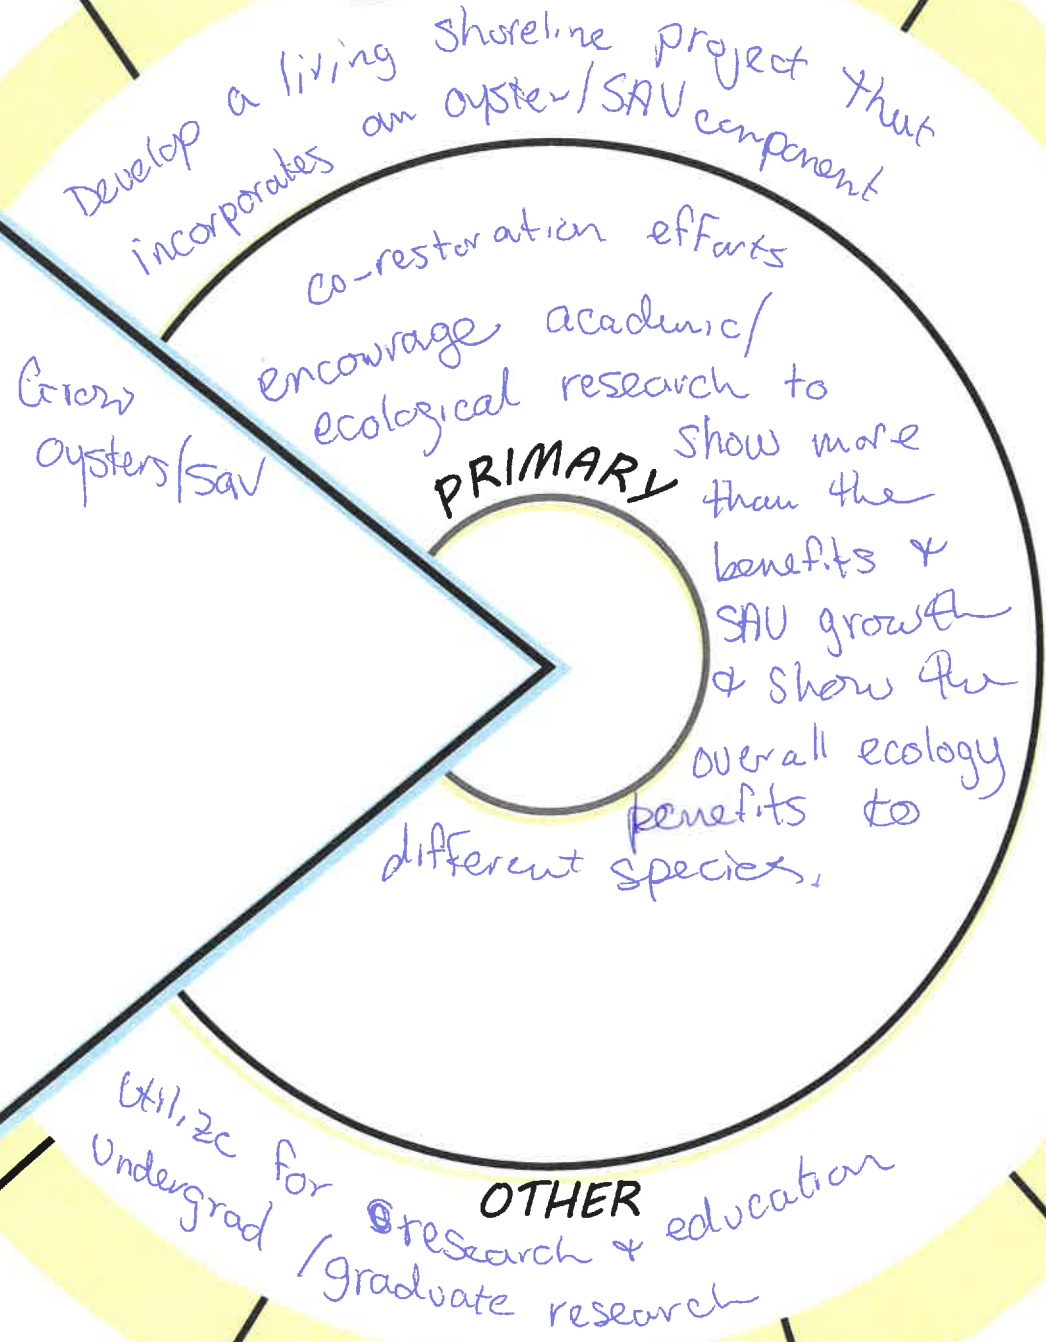 Develop a living shoreline project that
incorporates an oyster/SAV component
co-restoration efforts
encourage academic/
ecological research to
show more
than the
benefits &
SAV growth
& show the
overall ecology
benefits to
different species.
Grow
oysters/sav
PRIMARY
Utilize for research & education
Undergrad/graduate research
OTHER